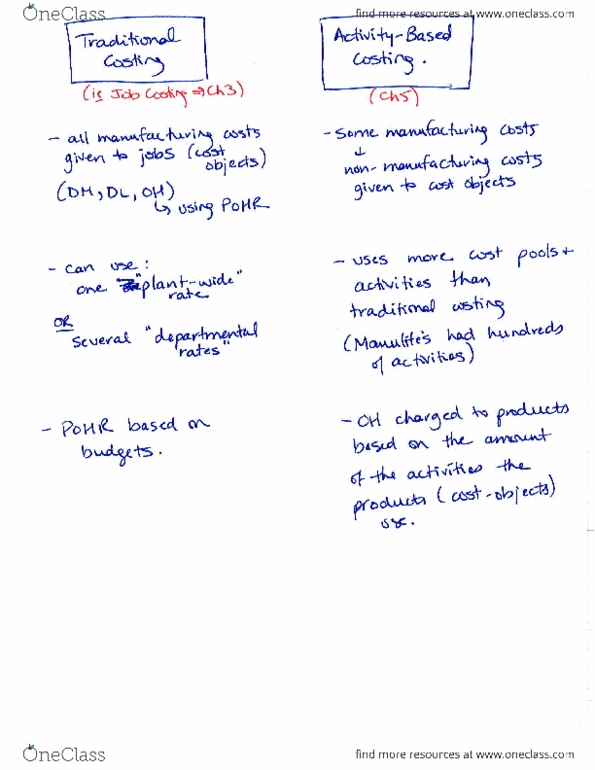 OneClass
find more resources at www.oneclass.com
Traditional
Costing
(is Job Costing ⇒ Ch3)
- all manufacturing costs
given to jobs (cost
objects)
(DM, DL, OH)
↳ using POHR
- can use:
one "plant-wide"
rate
OR
several "departmental
rates"
- POHR based on
budgets.
Activity-Based
Costing.
(Ch5)
- Some manufacturing costs
↓
non-manufacturing costs
given to cost objects
- uses more cost pools +
activities than
traditional costing
(Manulife's had hundreds
of activities)
- OH charged to products
based on the amount
of the activities the
products (cost-objects)
use.
OneClass
find more resources at www.oneclass.com